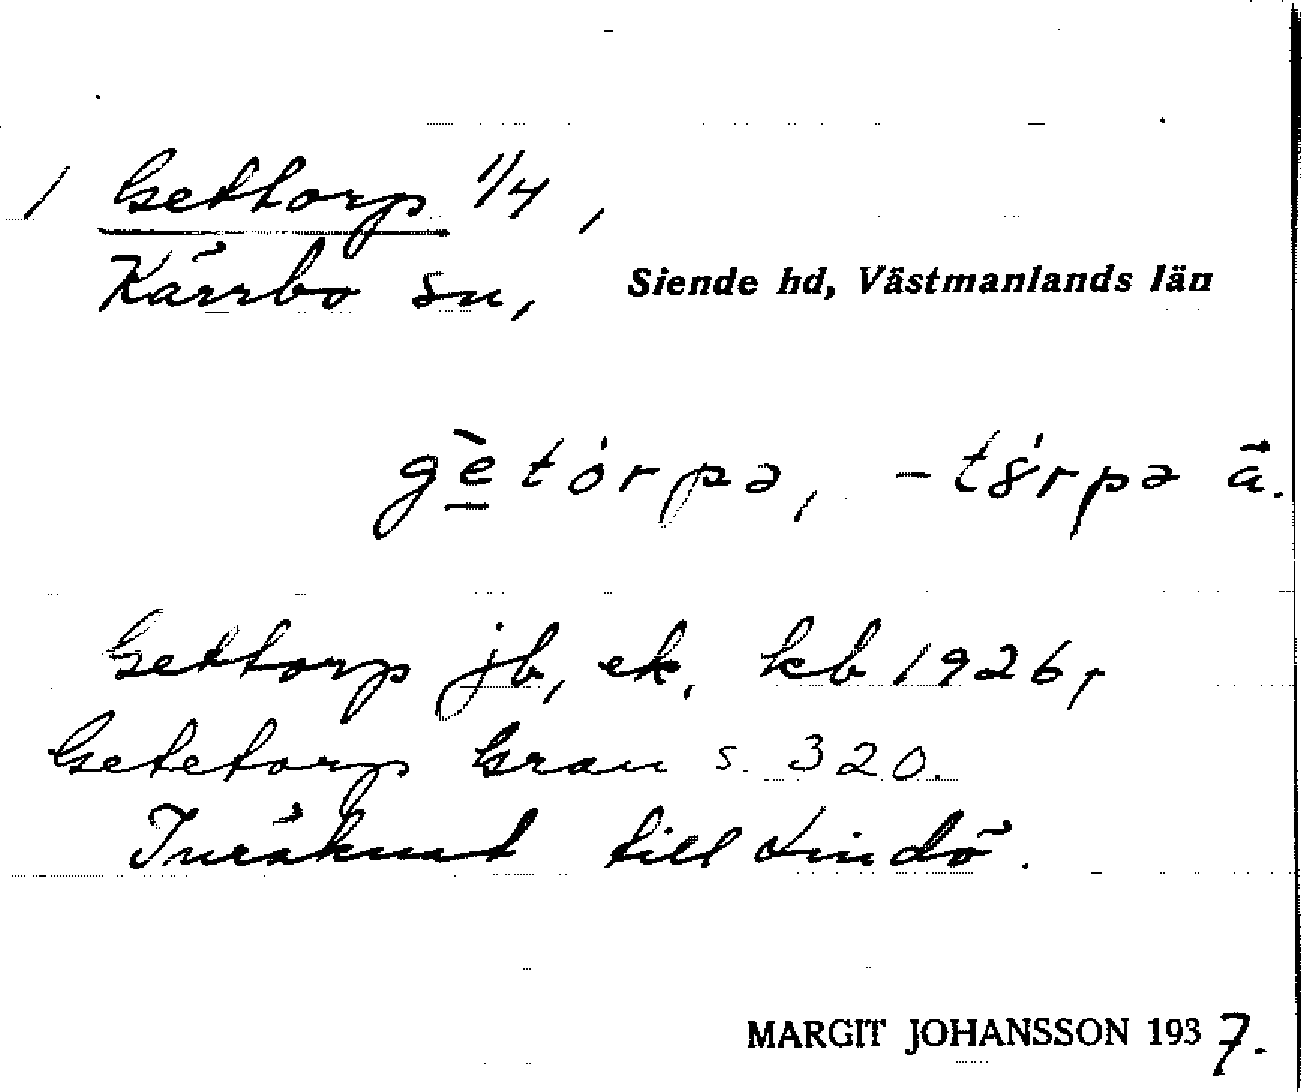 / Gettorp 1/4,
Kärrbo sn, Siende hd, Västmanlands län
gètórpə, -tórpə ä.
Gettorp jb, ek, kb 1926,
Getetorp Grau s. 320.
Inräknat till Lindö.
MARGIT JOHANSSON 1937.